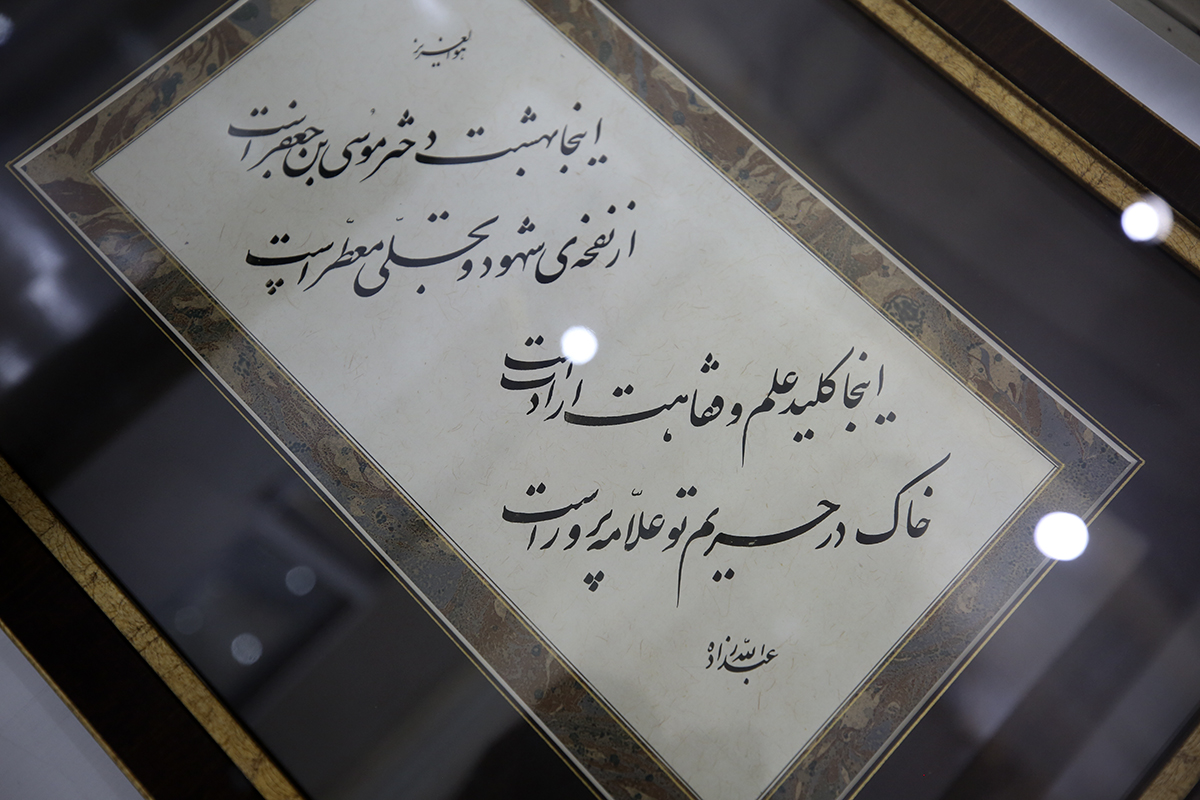 هوالعزیز
اینجا بهشت دختر موسی بن جعفر است
از نفخه‌ی شهود و تجلّی معطّر است
اینجا کلید علم و فقاهت ارادت است
خاک در حریم تو علاّمه پرور است
عبداللّه‌زاده